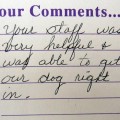 our Comments...
Your staff was
very helpful &
was able to get
our dog right
in.